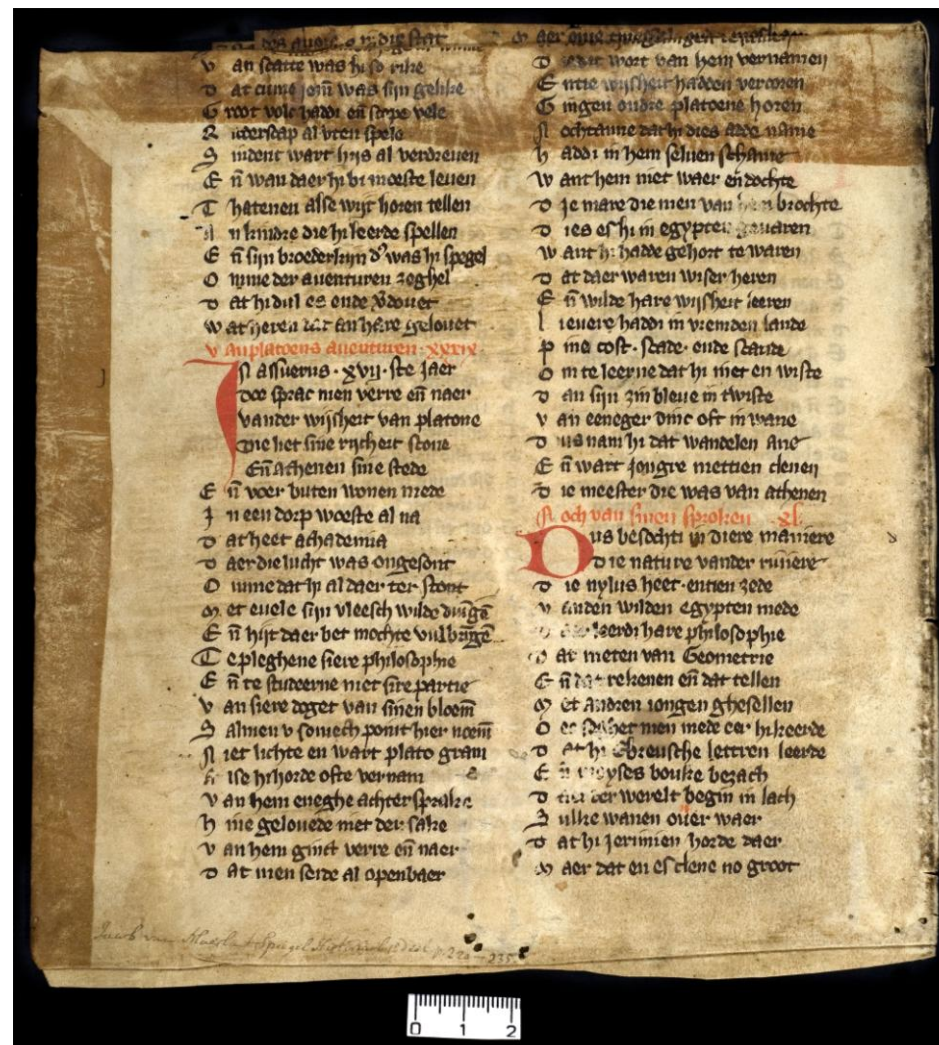 V an scatte was hi so rike
D at cume jom̄ was sijn gelike
G root volc haddi en̄ scepe vele
R idderscap al uten spele
S indent wart hijs al verdreven
E n̄ wan daer hi bi moeste leven
T hatenen alse wijt horen tellen
A n kindre die hi leerde spellen
E n̄ sijn broederkijn d' was hi spegel
O mme der aventuren zeghel
D at hi dul es ende v'douet
W at heren dat an hare gelouet
V an platoens aventuren · xxxix
I n assuerus · xvij · ste jaer
Doe sprac men verre en̄ naer
Vander wijsheit van platone
Die liet sine rijcheit scone
En̄ achenen sine stede
E n̄ voer buten wonen mede
I n een dorp woeste al na
D at heet achademia
D aer die lucht was ongesont
O mme dat hi al daer ter stont
M et evele sijn vleesch wilde dūigē
E n̄ hijt daer bet mochte vulbringē
T e pleghene siere philosophie
E n̄ te studeerne met sire partie
V an siere doget van sinen bloem̄
S almen v somech ponit hier noem̄
N iet lichte en wart plato gram
A lse hi horde ofte vernam
V an hem eneghe achtersprake
H ine gelovede niet der sake
V an hem ginct verre en̄ naer
D at men seide al openbaer
wort van hem vernamen
E ntie wijsheit hadden vercoren
G ingen oudre platoene horen
N ochtanne dat hi dies adde name
H addi in hem selven schame
W ant hem niet waer en dochte
D ie mare die men van hem brochte
D ies es hi in egypten gevaren
W ant hi hadde gehort te waren
D at daer waren wiser heren
E n̄ wilde hare wijsheit leeren
L ievere haddi in vremden lande
P ine cost · scade · ende scande
O m te leerne dat hi niet en wiste
D an sijn zin bleve in twiste
V an eeneger dinc oft in wane
D us nam hi dat wandelen ane
E n̄ wart jongre mettien clenen
D ie meester die was van athenen
N och van sinen sproken xl
D us besochti in diere maniere
Die nature vander riviere
D ie nylus heet · entien zede
V anden wilden egypten mede
D aer leerdi hare philosophie
D at meten van Geometrie
E n̄ dat rekenen en̄ dat tellen
M et andren iongen ghesellen
O ec men mede eer hi keerde
D at hi Ebreusche lettren leerde
E n̄ moyses bouke bezach
D aer der werelt begin in lach
S ulke wanen over waer
D at hi jerimien horde daer
M aer dat en es clene no groot
Jacob van Maerlant Spiegel Historiael p. 235
0 1 2